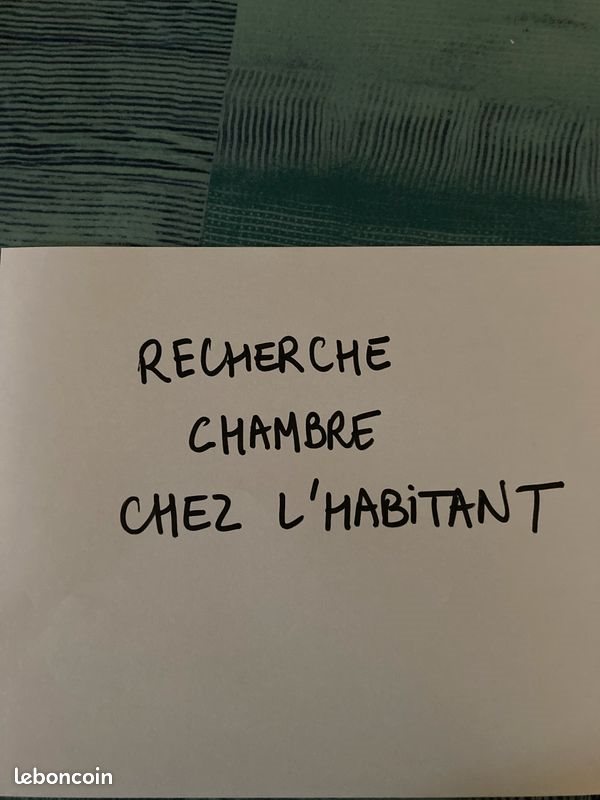 RECHERCHE
CHAMBRE
CHEZ L'HABiTANT
leboncoin